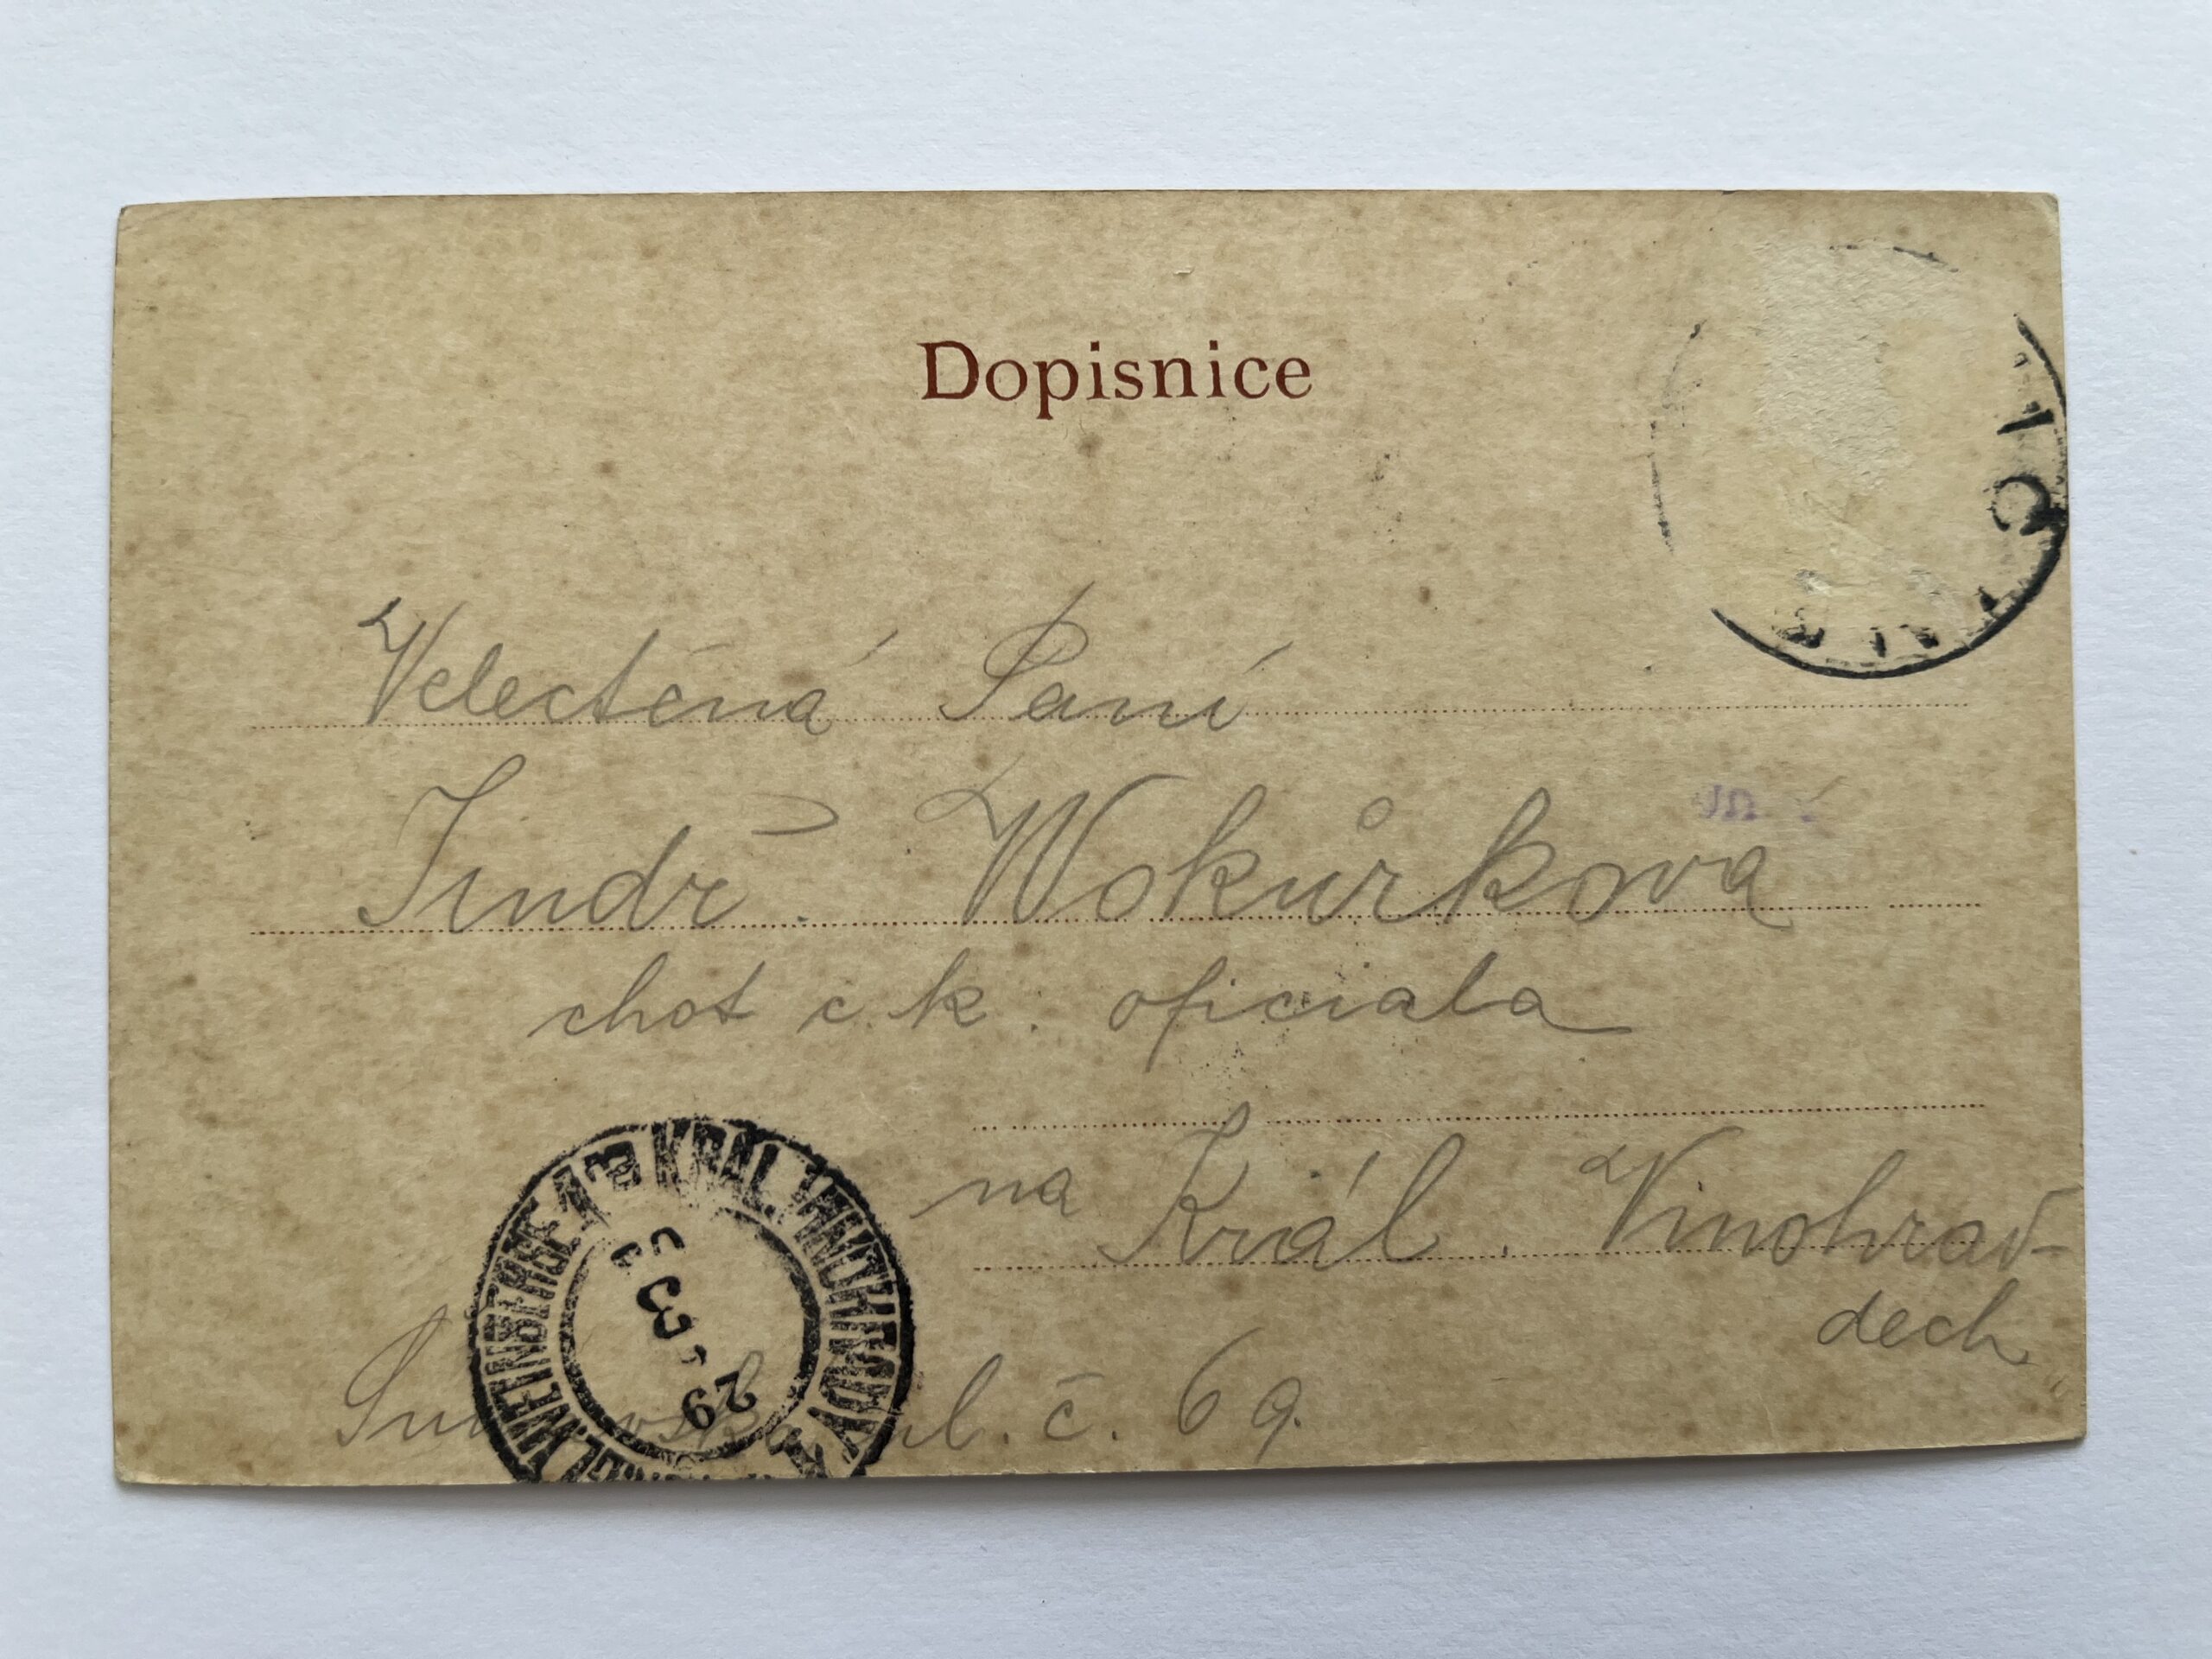 Dopisnice
Velectěná Paní
Jindř. Wokůrková
choť c. k. oficiala
na Král. Vinohrad-
dech
ul. č. 69.
KRÁL. VINOHRADY
KGL. WEINBERGE
29 3